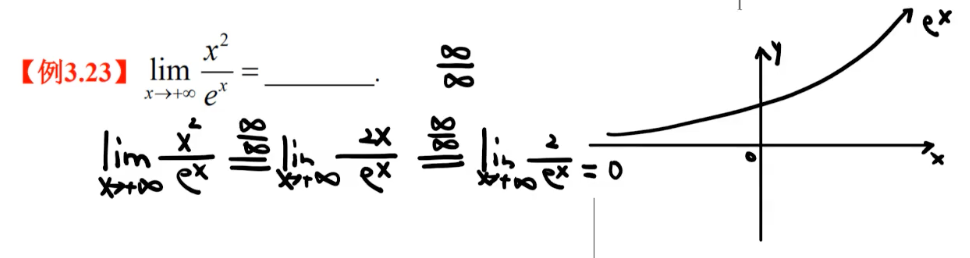 【例3.23】 lim x→+∞ x²/eˣ = ________. ∞/∞
lim x→+∞ x²/eˣ =(∞/∞) lim x→+∞ 2x/eˣ =(∞/∞) lim x→+∞ 2/eˣ = 0
y
eˣ
0
x